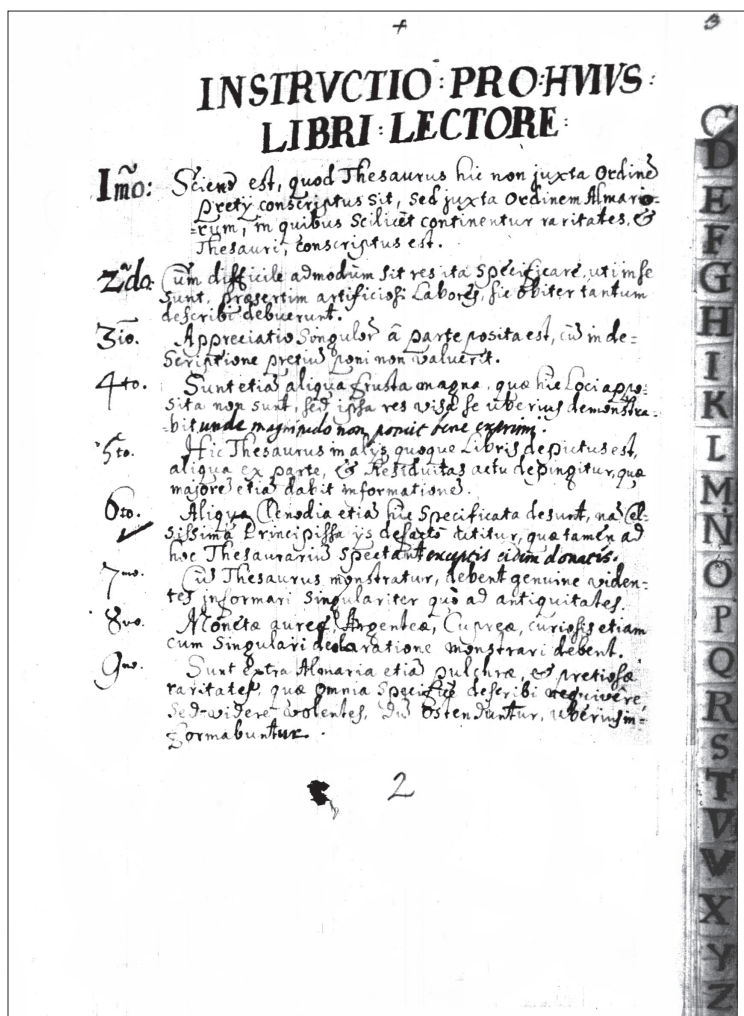 +
3
INSTRVCTIO : PRO : HVIVS :
LIBRI : LECTORE :
Im̃o: Sciend̃ est, quod Thesaurus hic non juxta Ordinẽ
Prety conscriptus sit, sed juxta Ordinem Almario=
=rum, in quibus Scilicet continentur raritates, &
Thesauri, conscriptus est.
2do. Cũm difficile admodùm sit res ita Specificare, uti in se
sunt, præsertim artificiosi Labores, sic obiter tantum
describi debuerunt.
3io. Appreciatio Singulor̃ à parte posita est, cũ in de=
Scriptione pretiũ poni non valuerit.
4to. Sunt etiã aliqua frusta magna, quæ hic Loci appo=
sita non sunt, sed ipsa res visa se uberius demonstra=
=bit unde magnitudo non potuit bene exprimi.
5to. Hic Thesaurus in alys quoque Libris depictus est,
aliqua ex parte, & Residuitas actu depingitur, quæ
majorẽ etiã dabit informationẽ.
6to. Aliqua Clenodia etiã hic Specificata desunt, nã Cel=
sissima Principissa ijs defacto utitur, quæ tamen ad
hoc Thesaurariũ Spectant exceptis eidem donatis.
7mo. Cũ Thesaurus monstratur, debent genuine viden=
tes informari Singulariter quò ad antiquitates.
8vo. Monetæ aureæ, Argenteæ, Cupreæ, curiosis etiam
cum Singulari declaratione monstrari debent.
9no. Sunt extra Almaria etiã pulchræ, & pretiosæ
raritates, quæ omnia Specificè describi nequivêre,
Sed videre volentes, dũ ostenduntur, uberius in=
formabuntur.
2
C
D
E
F
G
H
I
K
L
M
N
O
P
Q
R
S
T
V
W
X
Y
Z